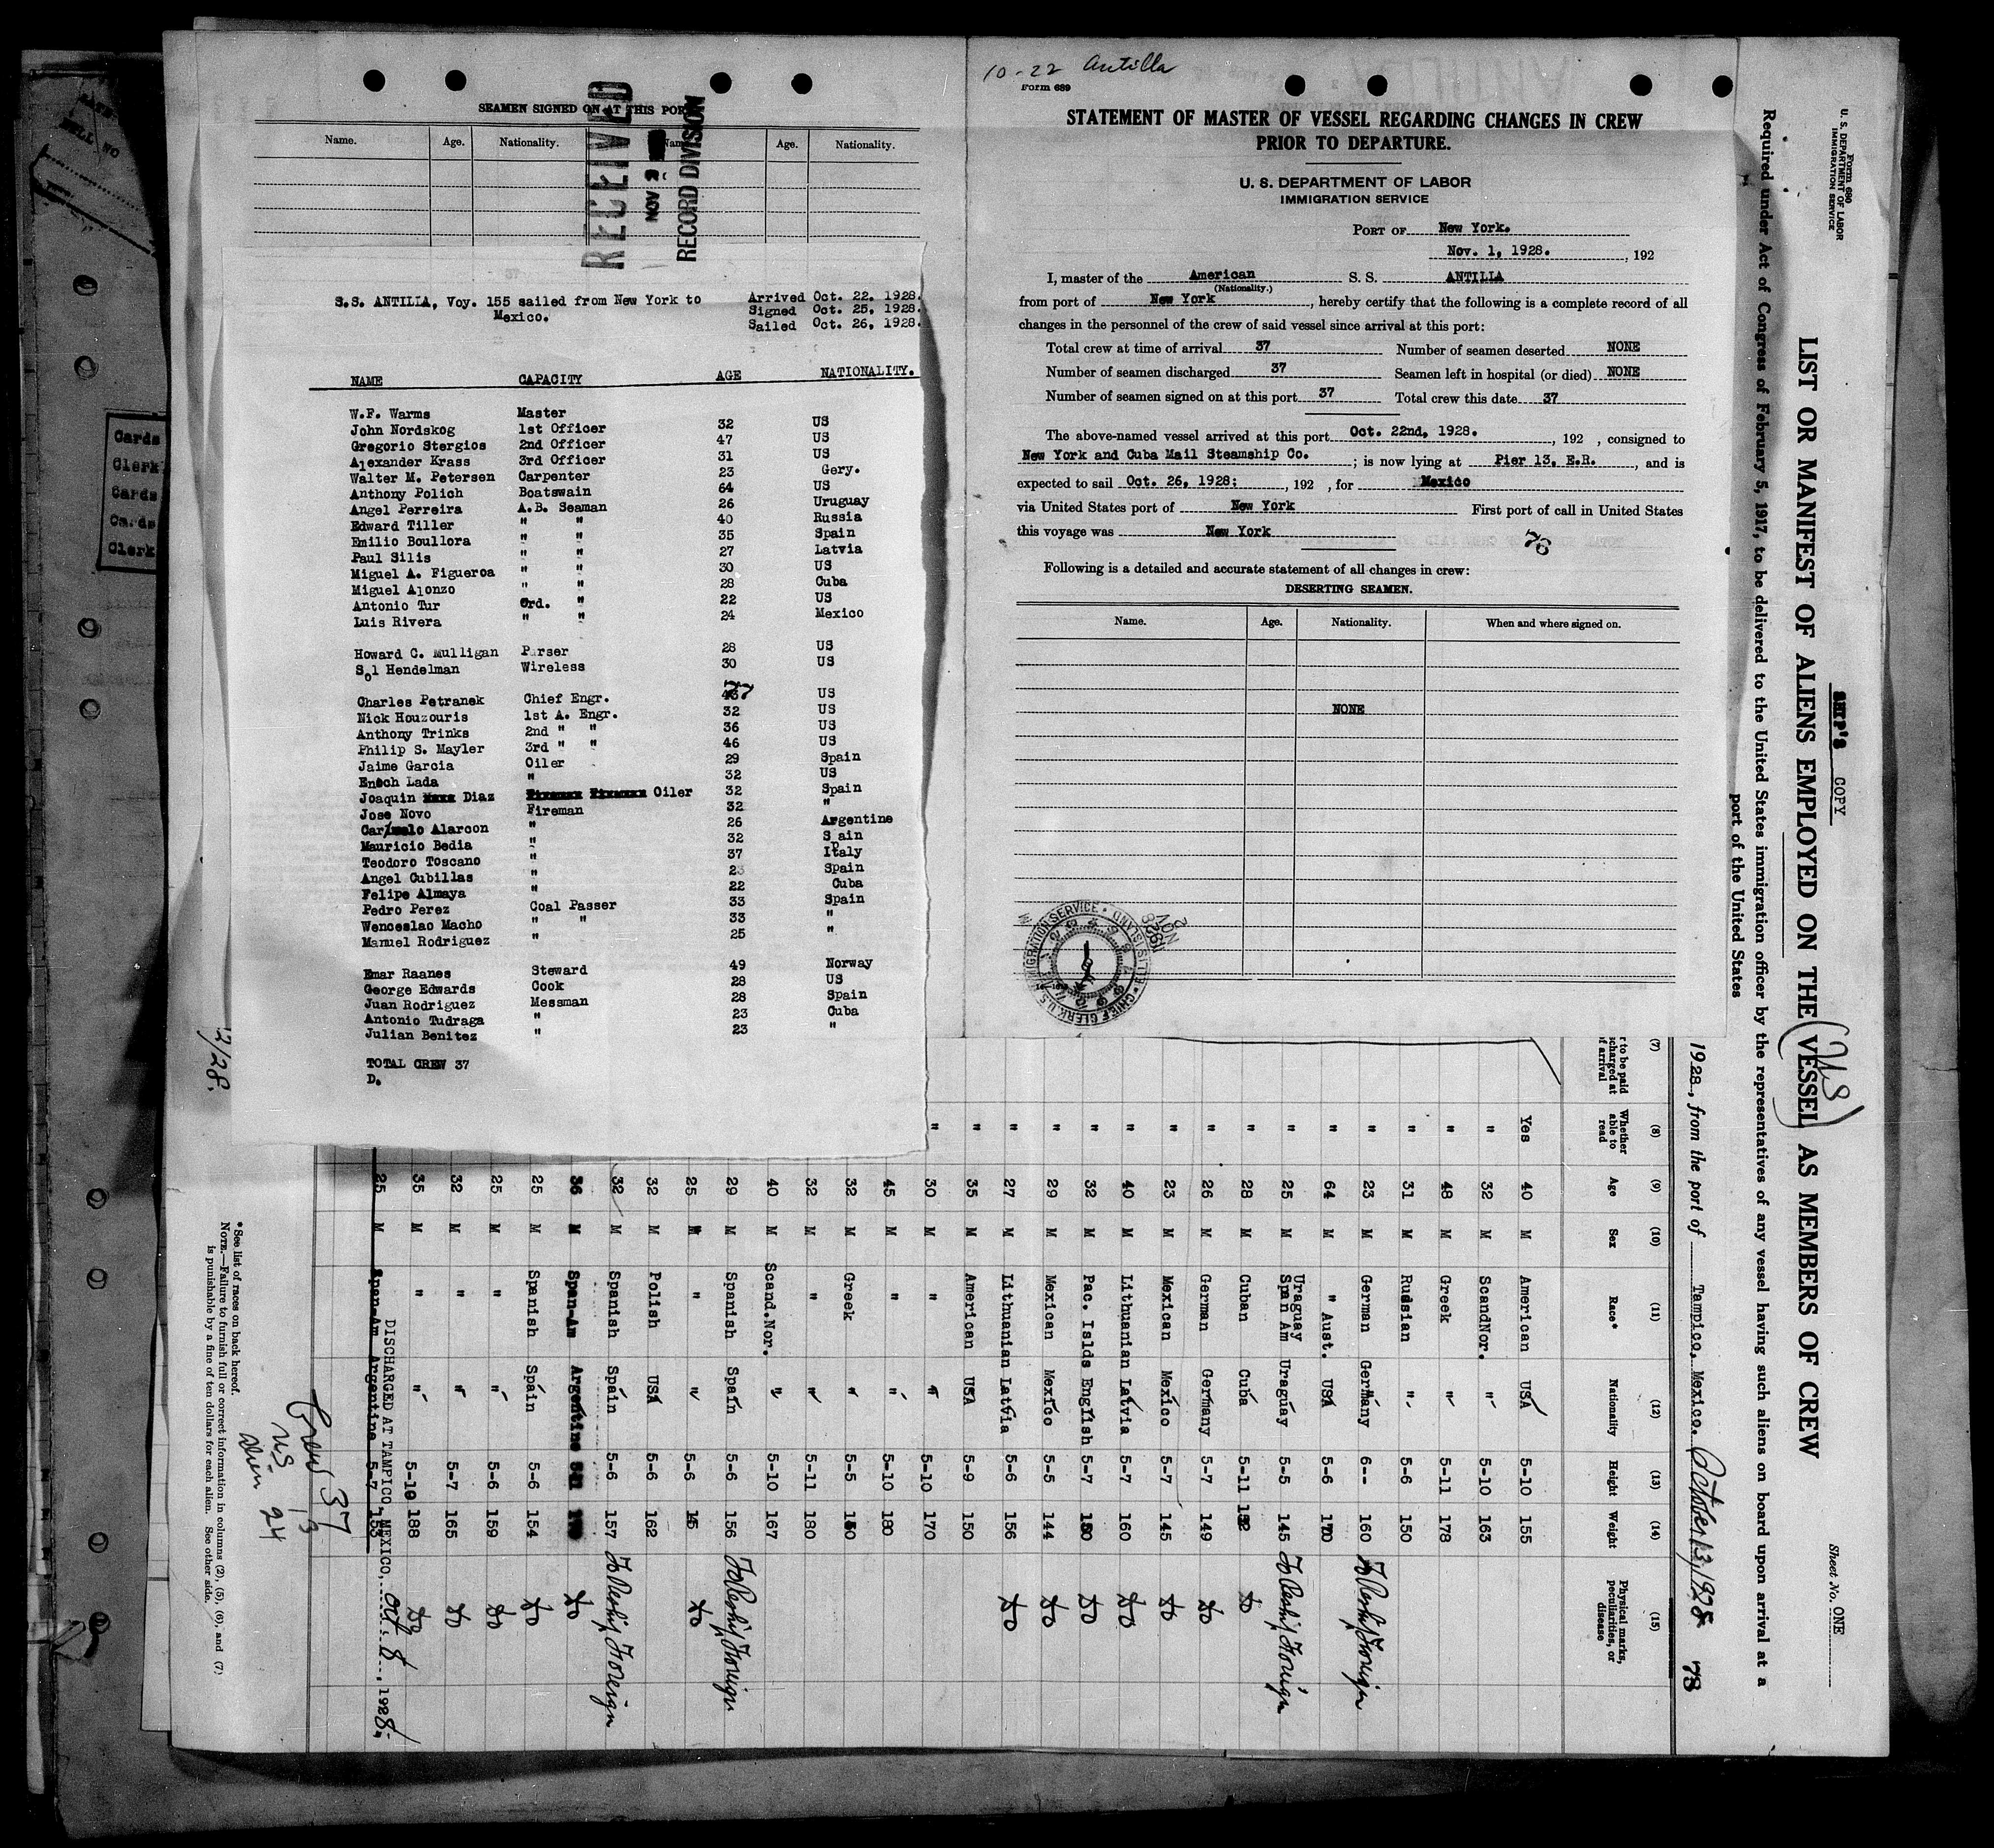 SEAMEN SIGNED ON AT THIS PORT
Name. Age. Nationality. Name. Age. Nationality.
RECEIVED
NOV
RECORD DIVISION
S.S. ANTILIA, Voy. 155 sailed from New York to
Mexico.
Arrived Oct. 22, 1928.
Signed Oct. 25, 1928.
Sailed Oct. 26, 1928.
NAME CAPACITY AGE NATIONALITY.
W.F. Warms Master
John Nordskog 1st Officer 32 US
Gregorio Stergios 2nd Officer 47 US
Alexander Krass 3rd Officer 31 US
Walter M. Petersen Carpenter 23 Gery.
Anthony Polich Boatswain 64 US
Angel Perreira A.B. Seaman 26 Uruguay
Edward Tiller " " 40 Russia
Emilio Boullora " " 35 Spain
Paul Silis " " 27 Latvia
Miguel A. Figueroa " " 30 US
Miguel Alonzo " " 28 Cuba
Antonio Tur Ord. " 22 US
Luis Rivera " " 24 Mexico
Howard C. Mulligan Purser 28 US
Sol Hendelman Wireless 30 US
Charles Petranek Chief Engr. US
Nick Houzouris 1st A. Engr. 32 US
Anthony Trinks 2nd " " 36 US
Philip S. Mayler 3rd " " 46 US
Jaime Garcia Oiler 29 Spain
Enoch Lada " 32 US
Joaquin Diaz Oiler 32 Spain
Jose Novo Fireman 32 "
Carmelo Alarcon " 26 Argentine
Mauricio Bedia " 32 Spain
Teodoro Toscano " 37 Italy
Angel Cubillas " 23 Spain
Felipe Almaya " 22 Cuba
Pedro Perez Coal Passer 33 Spain
Wenceslao Macho " " 33 "
Manuel Rodriguez " 25 "
Emar Raanes Steward 49 Norway
George Edwards Cook 28 US
Juan Rodriguez Messman 28 Spain
Antonio Tudraga " 23 Cuba
Julian Benitez " 23 "
TOTAL CREW 37
D.
10-22 Antilla
Form 689
STATEMENT OF MASTER OF VESSEL REGARDING CHANGES IN CREW
PRIOR TO DEPARTURE.
U. S. DEPARTMENT OF LABOR
IMMIGRATION SERVICE
PORT OF New York.
Nov. 1, 1928. , 192
I, master of the American S. S. ANTILIA
(Nationality.)
from port of New York , hereby certify that the following is a complete record of all
changes in the personnel of the crew of said vessel since arrival at this port:
Total crew at time of arrival 37 Number of seamen deserted NONE
Number of seamen discharged 37 Seamen left in hospital (or died) NONE
Number of seamen signed on at this port 37 Total crew this date 37
The above-named vessel arrived at this port Oct. 22nd, 1928. , 192 , consigned to
New York and Cuba Mail Steamship Co. ; is now lying at Pier 13, E.R. , and is
expected to sail Oct. 26, 1928; , 192 , for Mexico
via United States port of New York First port of call in United States
this voyage was New York
Following is a detailed and accurate statement of all changes in crew:
DESERTING SEAMEN.
Name. Age. Nationality. When and where signed on.
NONE
CHIEF CLERK U.S. IMMIGRATION SERVICE • ELLIS ISLAND
NOV 2 1928
Form 680
U. S. DEPARTMENT OF LABOR
IMMIGRATION SERVICE
SHIP'S COPY
Sheet No. ONE
LIST OR MANIFEST OF ALIENS EMPLOYED ON THE VESSEL AS MEMBERS OF CREW
US
Required under Act of Congress of February 5, 1917, to be delivered to the United States immigration officer by the representatives of any vessel having such aliens on board upon arrival at a
port of the United States
1928, from the port of Tampico, Mexico. October 13, 1928 78
(7) (8) (9) (10) (11) (12) (13) (14) (15)
r to be paid
scharged at
of arrival
Whether able to read Age Sex Race* Nationality Height Weight Physical marks, peculiarities, or disease
Yes 40 M American USA 5-10 155
" 32 M ScandNor. " 5-10 163
" 48 M Greek " 5-11 178
" 31 M Russian " 5-6 150
" 23 M German Germany 6-- 160 To Reship Foreign
" 64 M " Aust. USA 5-6 170
" 25 M Uraguay Span Am Uraguay 5-5 145 To Reship Foreign
" 28 M Cuban Cuba 5-11 Do
" 26 M German Germany 5-7 149 Do
" 23 M Mexican Mexico 5-7 145 Do
" 40 M Lithuanian Latvia 5-7 160 Do
" 32 M Pac. Islds English 5-7 150 Do
" 29 M Mexican Mexico 5-5 144 Do
" 27 M Lithuanian Latvia 5-6 156 Do
" 35 M American USA 5-9 150
" 30 M " " 5-10 170
45 M " " 5-10 180
32 M Greek " 5-5
32 M " " 5-11 180
40 M Scand.Nor. " 5-10 167
29 M Spanish Spain 5-6 156 To Reship Foreign
25 M " " 5-6 Do
32 M Polish USA 5-6 162
32 M Spanish Spain 5-6 157 To Reship Foreign
36 M Span-Am Argentine Do
25 M Spanish Spain 5-6 154 Do
25 M " " 5-6 159 Do
32 M " " 5-7 165 Do
35 M " " 5-10 188 Do
25 M Span-Am Argentine 5-7 153
DISCHARGED AT TAMPICO, MEXICO, Oct. 8, 1928.
Crew 37
US 13
alien 24
*See list of races on back hereof.
NOTE.—Failure to furnish full or correct information in columns (2), (5), (6), and (7)
is punishable by a fine of ten dollars for each alien. See other side.
2/28.
Cards
Clerk
Cards
Cards
Clerk